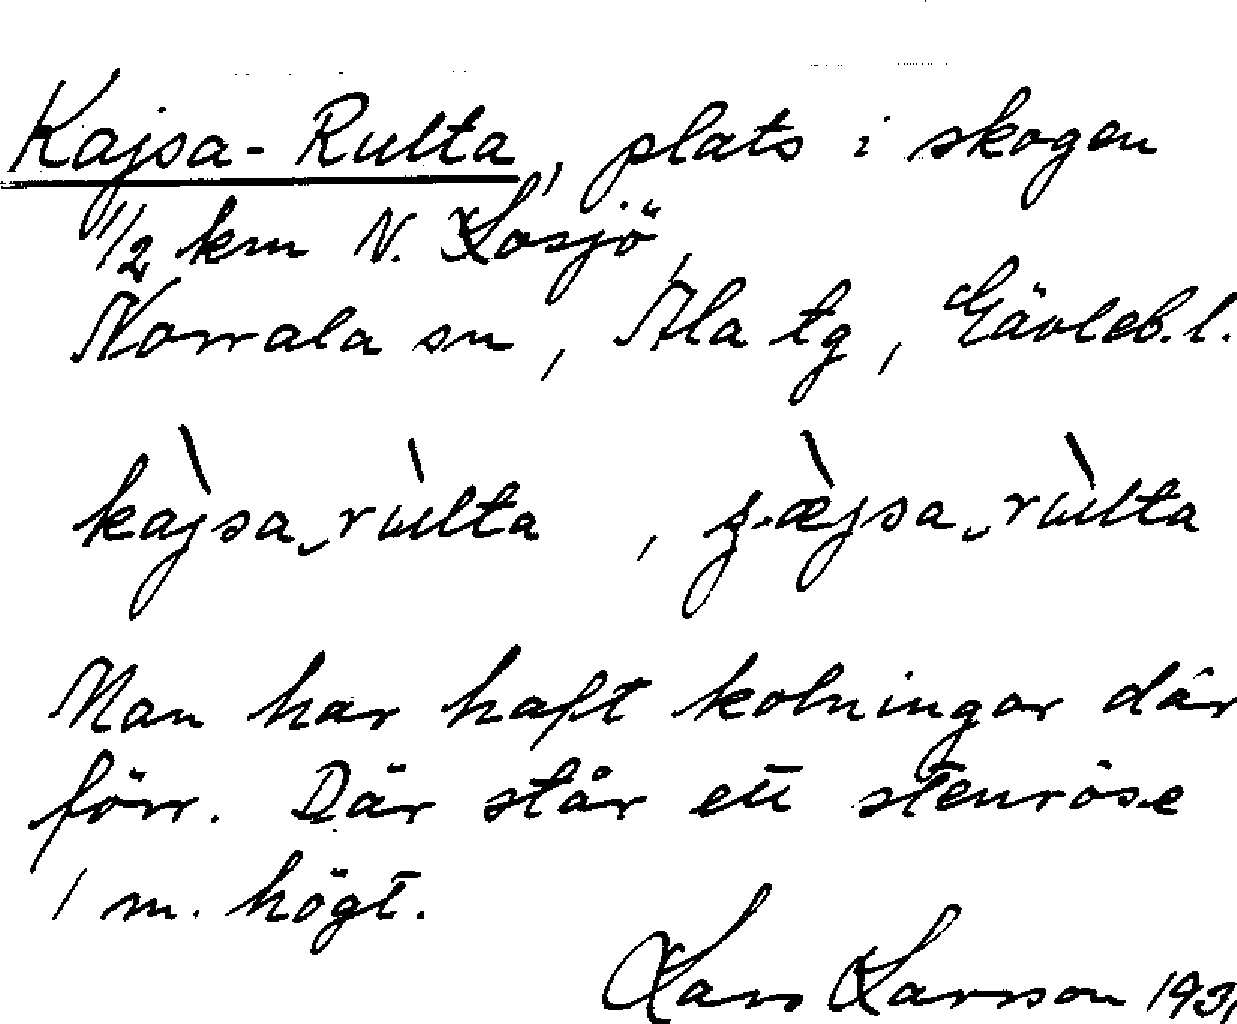 Kajsa-Rulta, plats i skogen
1/2 km N. Losjö,
Norrala sn, Ala tg, Gävleb. l.
kàjsa rùlta,
Man har haft kolningar där
förr. Där står ett stenröse
1 m. högt.
Lars Larsson 1931